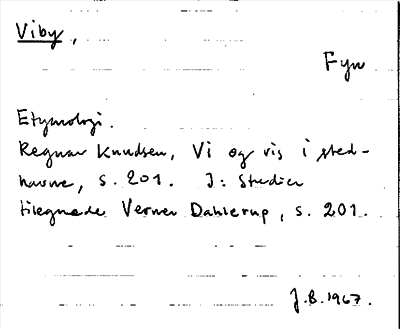 Viby,
Fyn
Etymologi.
Regnar Knudsen, Vi og vis i sted-
navne, s. 201. I: Studier
tilegnede Verner Dahlerup, s. 201.
J.B. 1967.